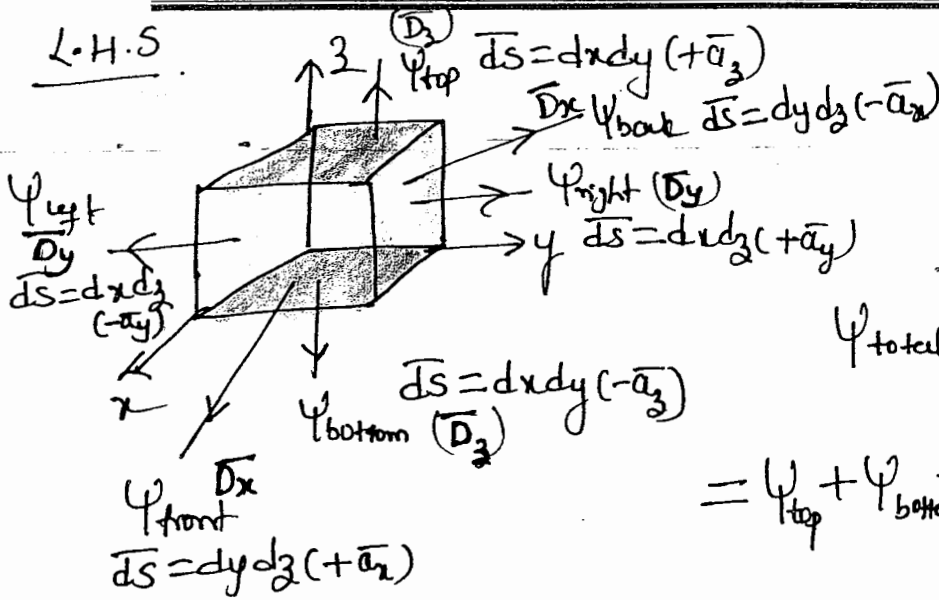 L.H.S
z
(D̅z)
Ψtop d̅s̅ = dxdy (+a̅z)
D̅x Ψback d̅s̅ = dydz (-a̅x)
Ψleft
D̅y
d̅s̅ = dxdz
(-a̅y)
Ψright (D̅y)
y d̅s̅ = dxdz (+a̅y)
Ψtotal
x
Ψbottom (D̅z)
d̅s̅ = dxdy (-a̅z)
Ψfront D̅x
d̅s̅ = dydz (+a̅x)
= Ψtop + Ψbotto